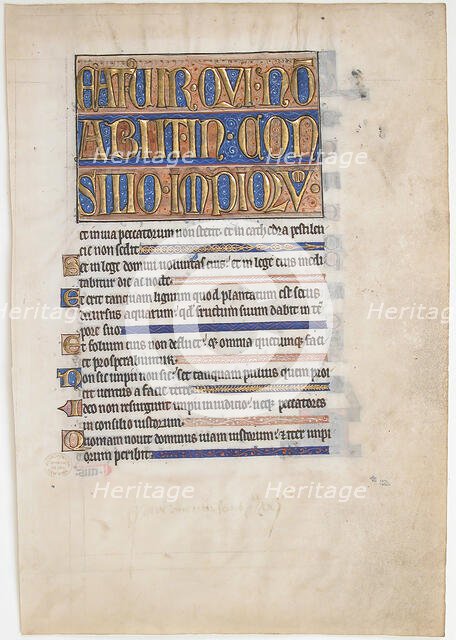 EATUIR·QVI·NO
ABIIT IN·CON
SILIO·IMPIORV
et in via peccatorum non stetit. et in cathedra pestilen
tie non sedit.
Set in lege domini voluntas eius. et in lege eius medi
tabitur die ac nocte.
Et erit tanquam lignum quod plantatum est secus
decursus aquarum. quod fructum suum dabit in tem
pore suo.
Et folium eius non defluet. et omnia quecumque faci
et prosperabuntur.
Non sic impii non sic. set tanquam pulvis quem proi
cit ventus a facie terre.
Ideo non resurgunt impii in iudicio. neque peccatores
in consilio iustorum.
Quoniam novit dominus viam iustorum. et iter impi
orum peribit.
Heritage
Heritage
Heritage
Heritage
Heritage
Heritage
Heritage
Heritage